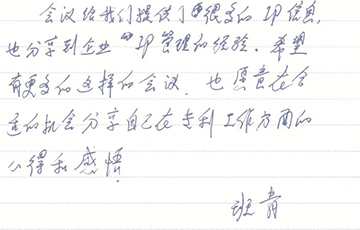 会议给我们提供了很多的IP信息,
也分享到企业的IP管理的经验。希望
有更多的这样的会议,也愿意在合
适的机会分享自己在专利工作方面的
心得和感悟
班青